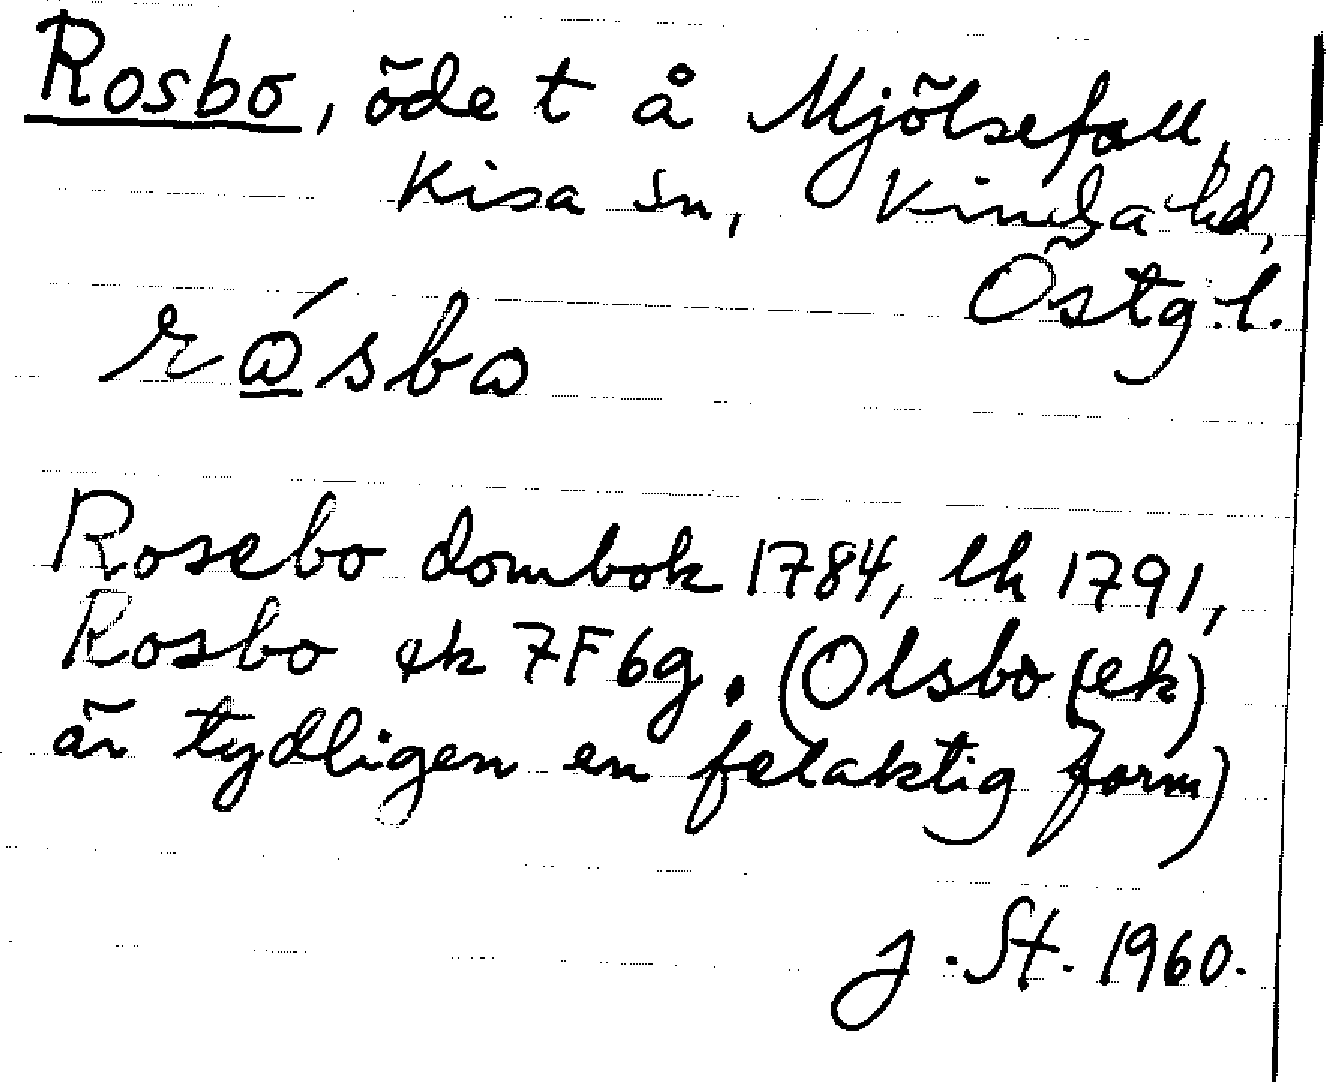 Rosbo, öde t å Mjölsefall,
Kisa sn, Kinda hd,
Östg.l.
rósbo
Rosebo dombok 1784, lh 1791,
Rosbo ek 7F6g. (Olsbo (ek)
är tydligen en felaktig form)
J. St. 1960.